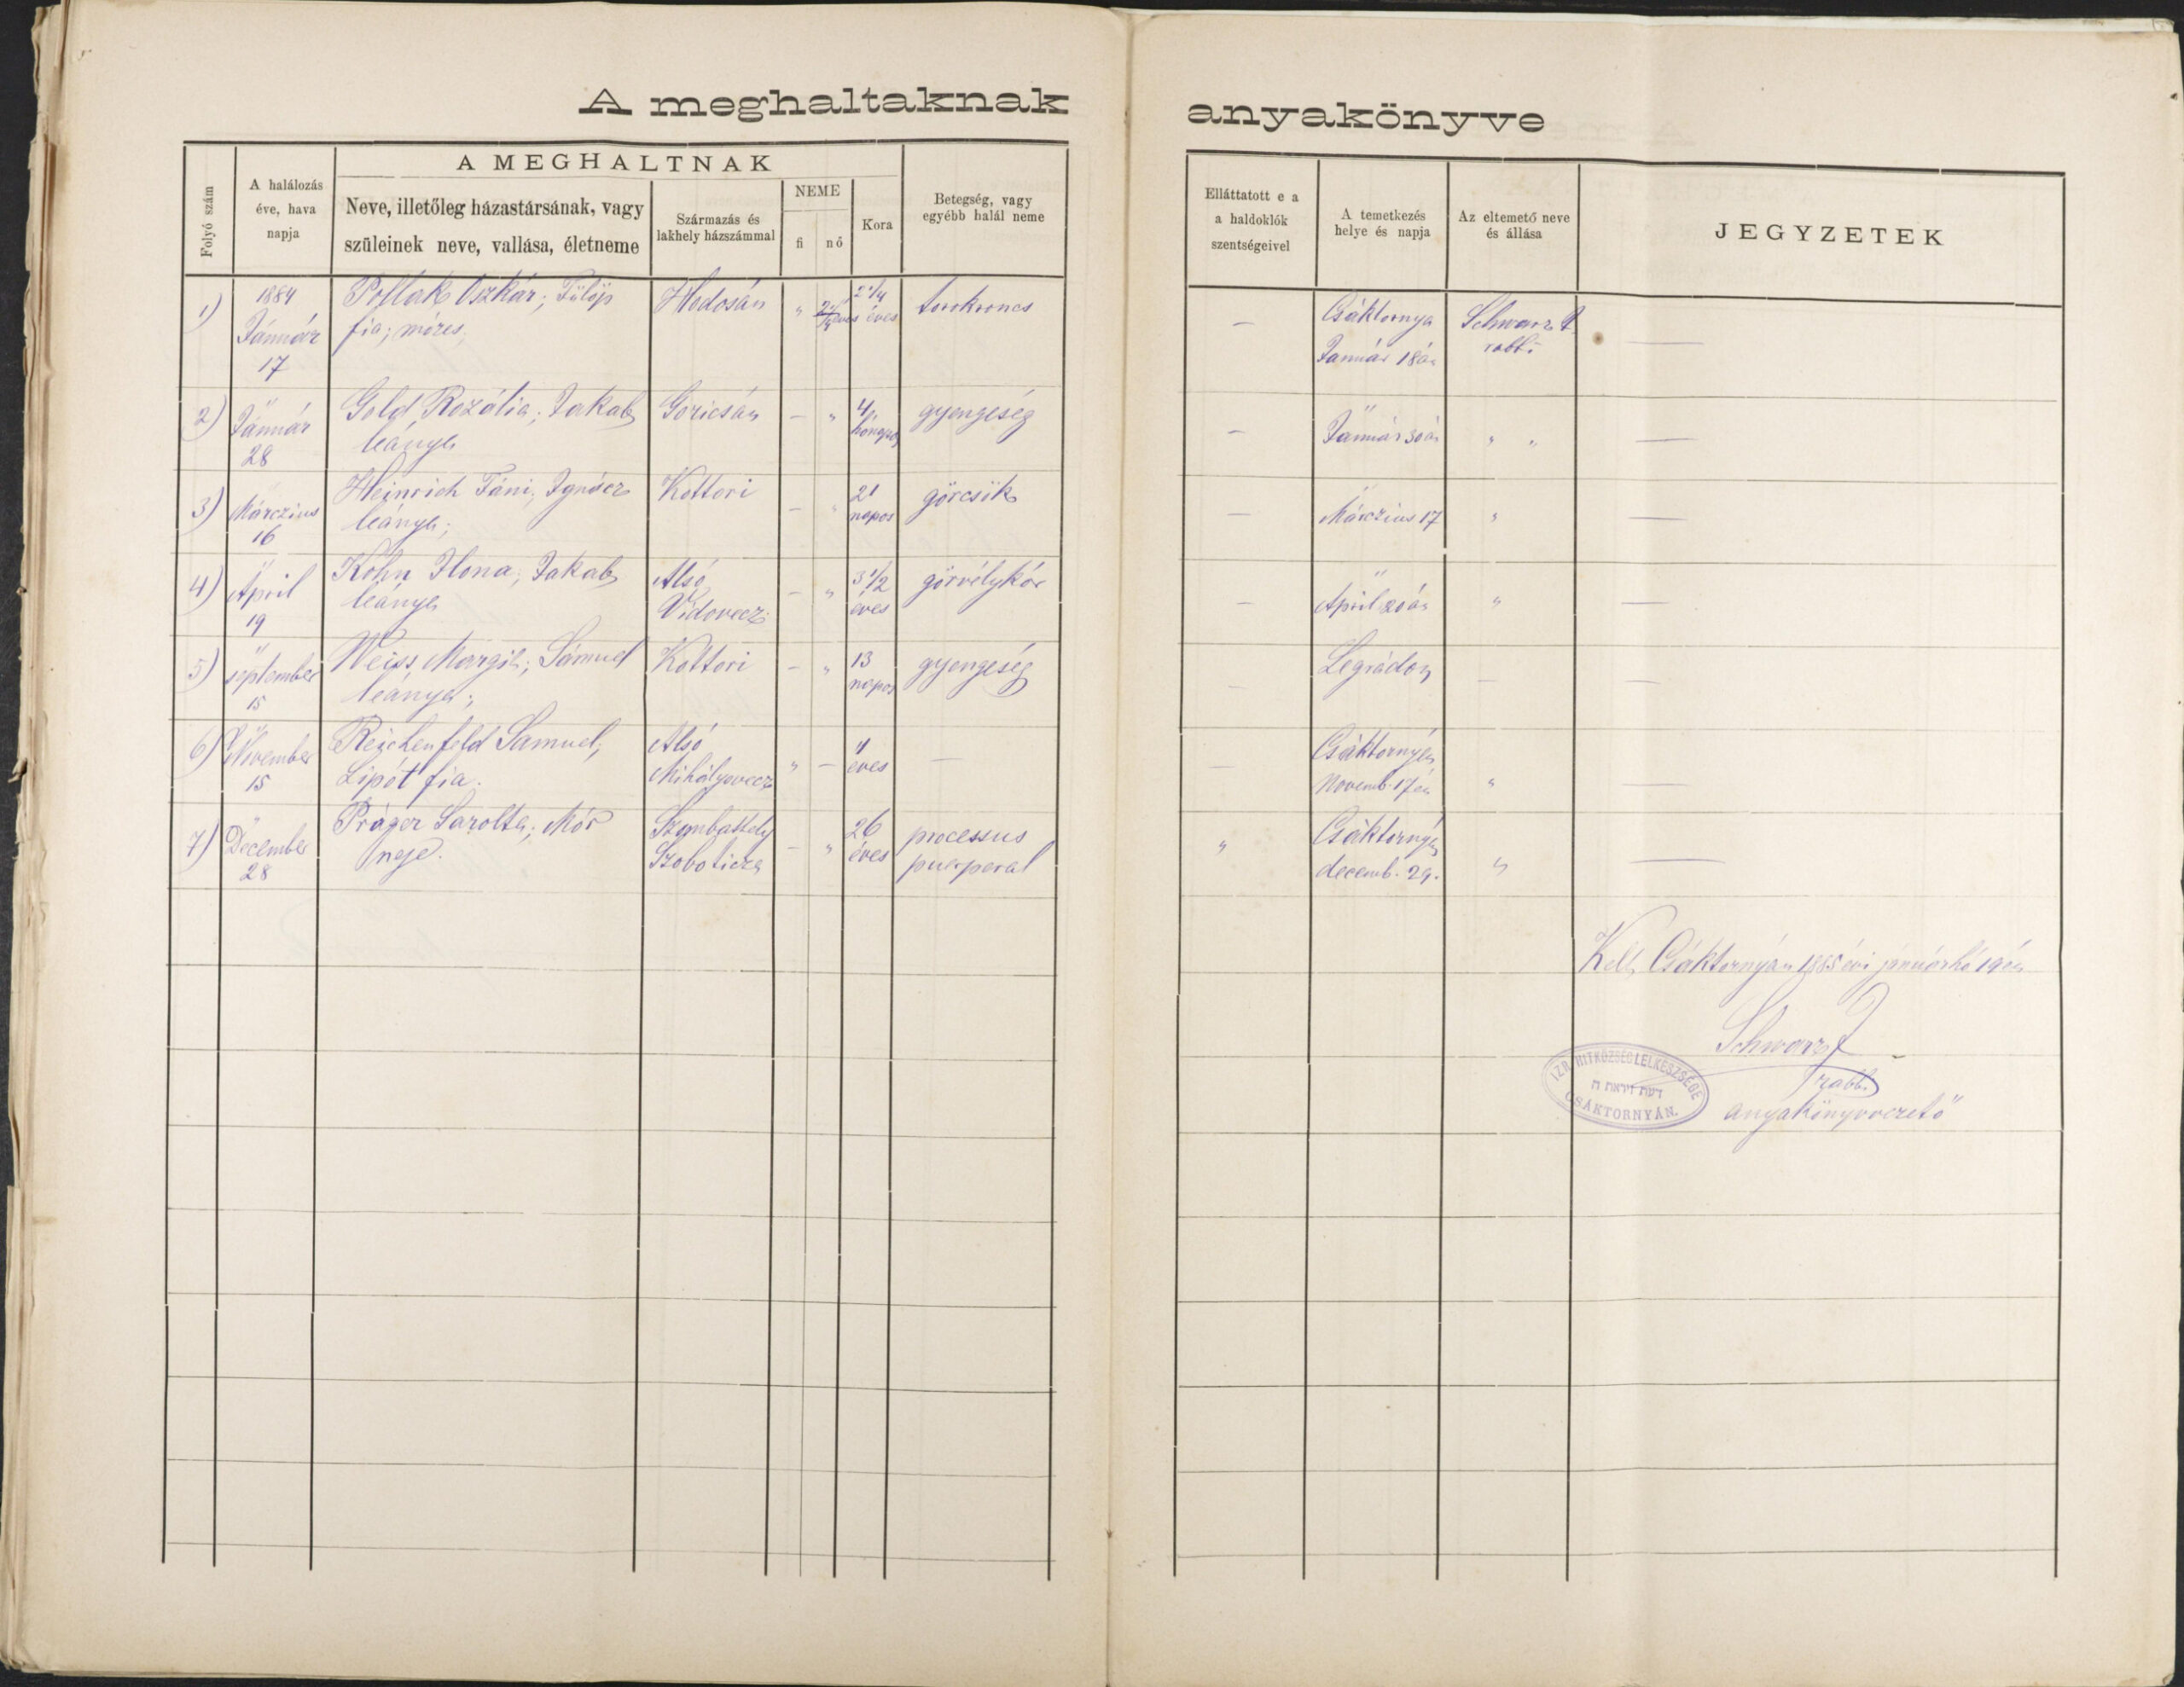 A meghaltaknak anyakönyve
Folyó szám
A halálozás
éve, hava
napja
A MEGHALTNAK
Neve, illetőleg házastársának, vagy
szüleinek neve, vallása, életneme
Származás és
lakhely házszámmal
NEME
fi nő
Kora
Betegség, vagy
egyébb halál neme
Elláttatott e a
a haldoklók
szentségeivel
A temetkezés
helye és napja
Az eltemető neve
és állása
JEGYZETEK
1) 1884 Pollak Oszkár; Fülöp Hodosán " 2 1/4 torokroncs — Csáktornya Schwarz —
Január fia; mózes; éves Január 18án rabbi
17
2) " Gold Rozália; Jakab Goricsán — " 4 gyengeség — " " " —
Január leánya hónapos Január 30án
28
3) Márczius Heinrich Fáni; Ignácz Kottori — " 21 görcsök — " " —
16 leánya; napos Márczius 17
4) " Kohn Ilona; Jakab Alsó — " 3 1/2 görvélykór — " " —
April leánya Vidovecz éves April 20án
19
5) " Weiss Margit; Sámuel Kottori — " 13 gyengeség — Legrádon — —
september leánya; napos
15
6) " Reichenfeld Samuel; Alsó " — 11 — — Csáktornyán " —
November Lipót fia. Mihályovecz éves Novemb. 17én
15
7) " Práger Sarolta; Mór Szombathely — " 26 processus " Csáktornyán " —
December neje. Szoboticza éves puerperal decemb. 29.
28
Kelt Csáktornyán 1885 évi januárhó 19én
Schwarz
rabbi
anyakönyvvezető
IZR. HITKÖZSÉG LELKÉSZSÉGE
דעת ויראת ה
CSÁKTORNYÁN.